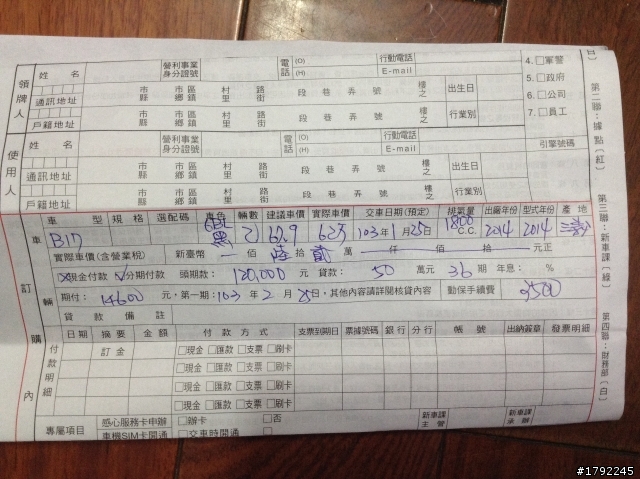 領牌人
姓 名 營利事業身分證號 電話 (O) (H) 行動電話 E-mail
通訊地址 市縣 市區鄉鎮 村里 路街 段 巷 弄 號 樓之 出生日
戶籍地址 市縣 市區鄉鎮 村里 路街 段 巷 弄 號 樓之 行業別
4. □軍警
5. □政府
6. □公司
7. □員工
使用人
姓 名 營利事業身分證號 電話 (O) (H) 行動電話 E-mail 引擎號碼
通訊地址 市縣 市區鄉鎮 村里 路街 段 巷 弄 號 樓之 出生日
戶籍地址 市縣 市區鄉鎮 村里 路街 段 巷 弄 號 樓之 行業別
訂購內
車輛
車 型 規 格 選配碼 車色 輛數 建議車價 實際車價 交車日期(預定) 排氣量 出廠年份 型式年份 產 地
B17 黑 62.9 62.3 103年1月25日 1800 C.C. 2014 2014
實際車價(含營業稅) 新臺幣 佰 陸拾 貳 萬 仟 佰 拾 元正
現金付款 分期付款 頭期款: 120,000 元 貸款: 50 萬元 36 期 年息: %
期付: 14600 元,第一期: 103 年 2 月 日,其他內容請詳閱核貸內容 動保手續費 3500
貸 款 備 註
付款明細
日期 摘 要 金 額 付 款 方 式 支票到期日 票據號碼 銀 行 分 行 帳 號 出納簽章 發票明細
訂 金 □現金 □匯款 □支票 □刷卡
□現金 □匯款 □支票 □刷卡
□現金 □匯款 □支票 □刷卡
□現金 □匯款 □支票 □刷卡
專屬項目 感心服務卡申辦 □辦卡 □否 新車課主管 新車課承辦
車機SIM卡開通 □交車時開通 □
第二聯:據 點(紅)
第三聯:新車課(綠)
第四聯:財務部(白)
#1792245